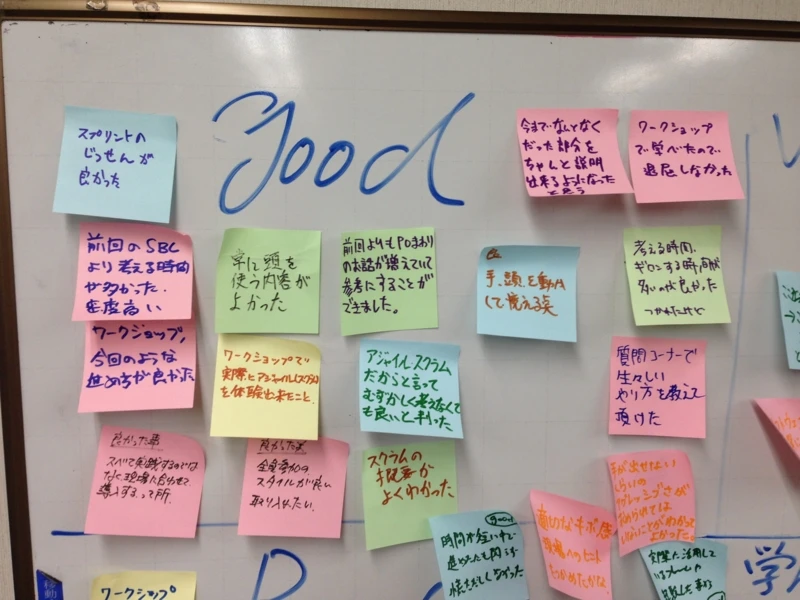 good
スプリントの
じっせんが
良かった
今までなんとなく
だった部分を
ちゃんと説明
出来るようになった
と思う
ワークショップ
で学べたので
退屈しなかった
前回のSBL
より考える時間
が多かった.
密度高い
常に頭を
使う内容が
よかった
前回よりもPOまわり
のお話が増えていて
参考にすることが
できました。
手、頭を動か
して覚える
考える時間.
ギロンする時間が
多いのが良かった
つかれたけど
ワークショップ,
今回のような
進め方が良かった
ワークショップで
実際にアジャイル(スクラム)
を体験出来たこと.
アジャイルスクラム
だからと言って
むずかしく考えなくて
も良いと判った
質問コーナーで
生々しい
やり方を教えて
頂けた
良かった事
スベて実践するのでは
なく、現場に合わせて
導入するって所.
良かった
全員参加の
スタイルが良い
取り入れたい.
スクラムの
概要が
よくわかった
手が出せない
くらいの
よかった。
good
時間が短い中で
ワークショップ
学